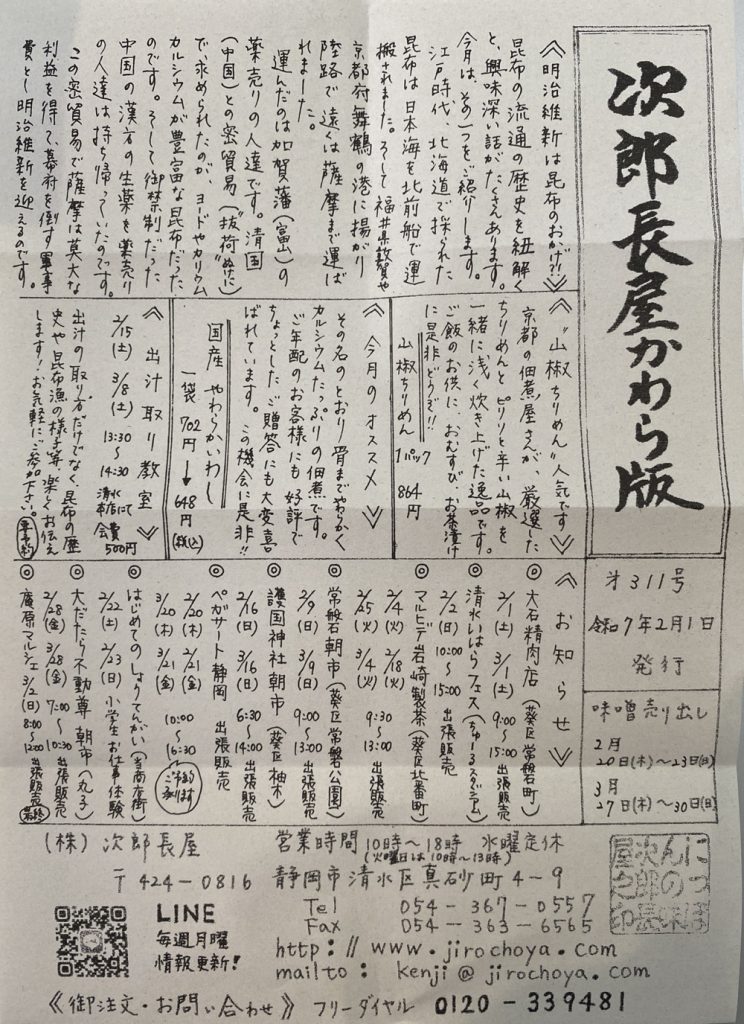 次郎長屋かわら版
≪明治維新は昆布のおかげ!!≫
昆布の流通の歴史を紐解く
と、興味深い話がたくさんあります。
今月は、その一つをご紹介します。
江戸時代、北海道で採られた
昆布は日本海を北前船で運
搬されました。そして福井県敦賀や
京都府舞鶴の港に揚がり
陸路で遠くは薩摩まで運ば
れました。
運んだのは加賀藩(富山)の
薬売りの人達です。清国
(中国)との密貿易(抜荷ぬけに)
で求められたのが、ヨードやカリウム
カルシウムが豊富な昆布だった
のです。そして御禁制だった
中国の漢方の生薬を薬売り
の人達は持ち帰っていたのです。
この密貿易で薩摩は莫大な
利益を得て、幕府を倒す軍事
費とし明治維新を迎えるのです。
≪“山椒ちりめん”人気です≫
京都の佃煮屋さんが、厳選した
ちりめんとピリリと辛い山椒を
一緒に浅く炊き上げた逸品です。
ご飯のお供に、おむすび、お茶漬け
に是非どうぞ!!
山椒ちりめん
1パック 864円
≪今月のオススメ≫
その名のとおり骨までやわらかく
カルシウムたっぷりの佃煮です。
ご年配のお客様にも好評で
ちょっとしたご贈答にも大変喜
ばれています。この機会に是非!!
国産 やわらかいわし
一袋 702円→648円(税込)
≪出汁取り教室≫
2/15(土) 3/8(土) 13:30〜14:30 清水本店にて 会費500円
出汁の取り方だけでなく、昆布の歴
史や昆布漁の様子等、楽しくお伝え
します!お気軽にご参加下さい。要予約
≪お知らせ≫
◎大石精肉店(葵区常磐町)
2/1(土) 3/1(土) 9:00〜15:00 出張販売
◎清水いはらフェス(ちゅ〜るスタジアム)
2/2(日) 10:00〜15:00 出張販売
◎マルヒデ岩崎製茶(葵区北番町)
2/4(火) 2/18(火)
2/25(火) 3/4(火) 9:30〜13:00 出張販売
◎常磐朝市(葵区常磐公園)
2/9(日) 3/9(日) 9:00〜13:00 出張販売
◎護国神社朝市(葵区柚木)
2/16(日) 3/16(日) 6:30〜14:00 出張販売
◎ペガサート静岡 出張販売
2/20(木) 2/21(金)
3/20(木) 3/21(金) 10:00〜16:30
◎はじめてのしょうてんがい(清水駅前銀座)
2/22(土) 2/23(日) 小学生お仕事体験
◎大だたら不動尊 朝市(丸子)
2/28(金) 3/28(金) 7:00〜10:30 出張販売
◎庵原マルシェ 3/2(日) 8:00〜12:00 出張販売 最終
才311号
令和7年2月1日
発行
味噌売り出し
2月
20日(木)〜23日(日)
3月
27日(木)〜30日(日)
(株)次郎長屋
営業時間 10時〜18時 水曜定休
(火曜日は10時〜13時)
〒424-0816 静岡市清水区真砂町4-9
Tel 054-367-0557
Fax 054-363-6565
http://www.jirochoya.com
mailto: kenji@jirochoya.com
LINE
毎週月曜
情報更新!
にっぽ
んの味
次郎長
屋之印
≪御注文・お問い合わせ≫ フリーダイヤル 0120-339481